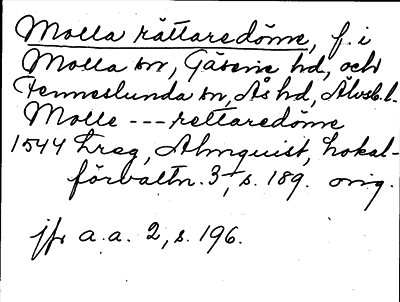 Molla rättaredöme, f. i
Molla sn, Gäsene hd, och
Fenneslunda sn, Ås hd, Älvsb. l.
Molle --- rettaredöme
1544 Lreg, Almquist, Lokal-
förvaltn. 3, s. 189. orig.
jfr a.a. 2, s. 196.